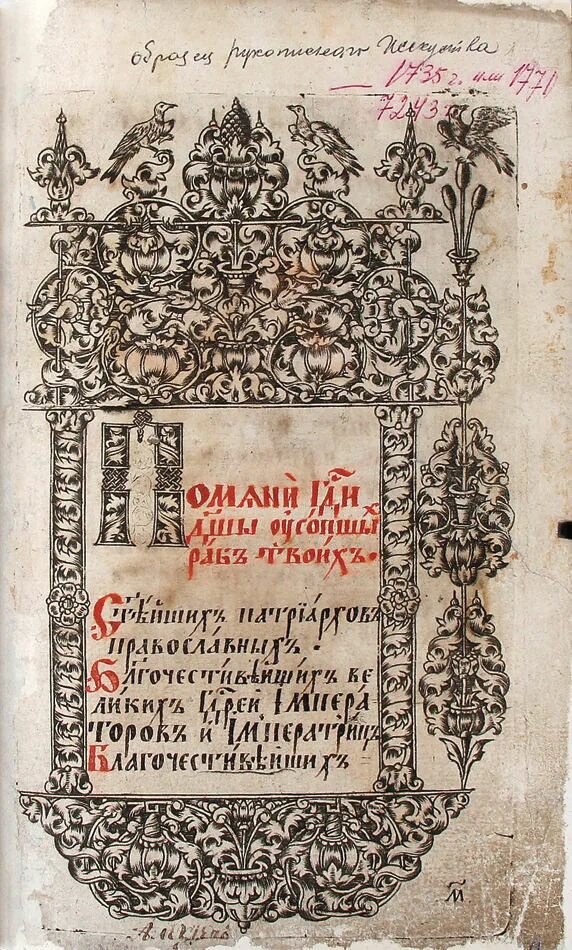 образец рукописного Искуства
1735 г. или 1771
7243 г
Помѧнѝ Гдⷭ҇и
дш҃ы оусопшыⷯ
ра̑бъ твоихъ.
Ст҃ѣ́йшихъ патрїа́рховъ
правосла́вныхъ.
Бл҃гочести́вѣ́йшихъ ве
ли́кихъ Ц҃ре́й И҆мпера-
торовъ и҆ И҆мператри́цъ
Благочести́вѣ́йшихъ